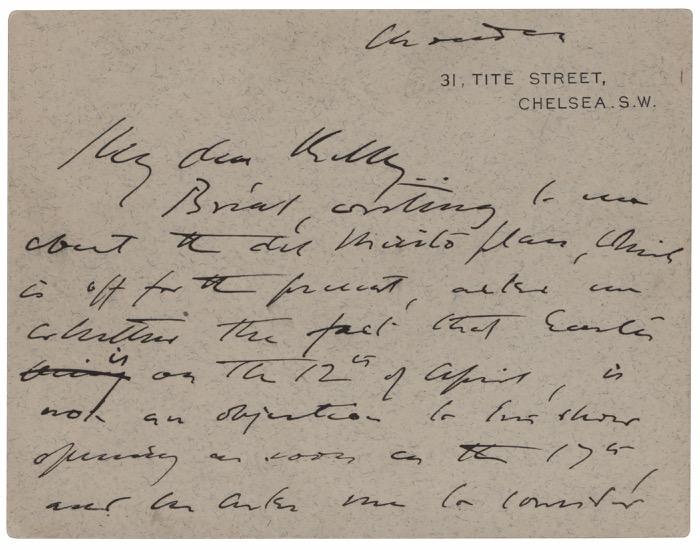 Monday
31, TITE STREET,
CHELSEA. S.W.
My dear Kelly..
Brial, writing to me
about the del Sarto plan, which
is off for the present, asks me
whether the fact that Easter
is
being on the 12th of April, is
not an objection to his show
opening as soon as the 17th,
and he asks me to consider